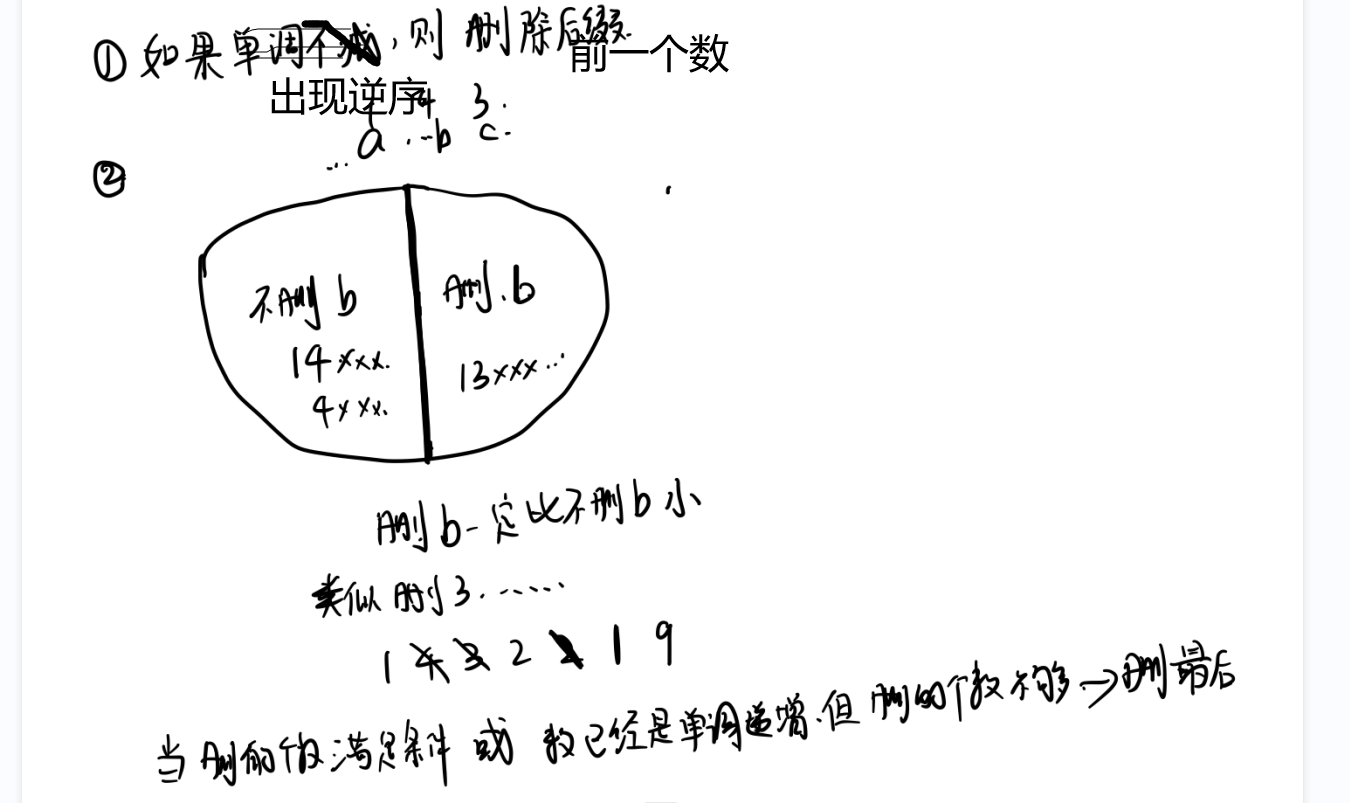 ① 如果单调不减,则 删除后缀.
前一个数
出现逆序
4 3.
... a ... b c.
②
不删 b
删.b
14xxx.
13xxx...
4xxx.
删 b 一定比不删 b 小
类似删 3. ......
1 4 3 2 1 9
当删的个数满足条件 或 数已经是单调递增.但 删的个数不够 → 删最后